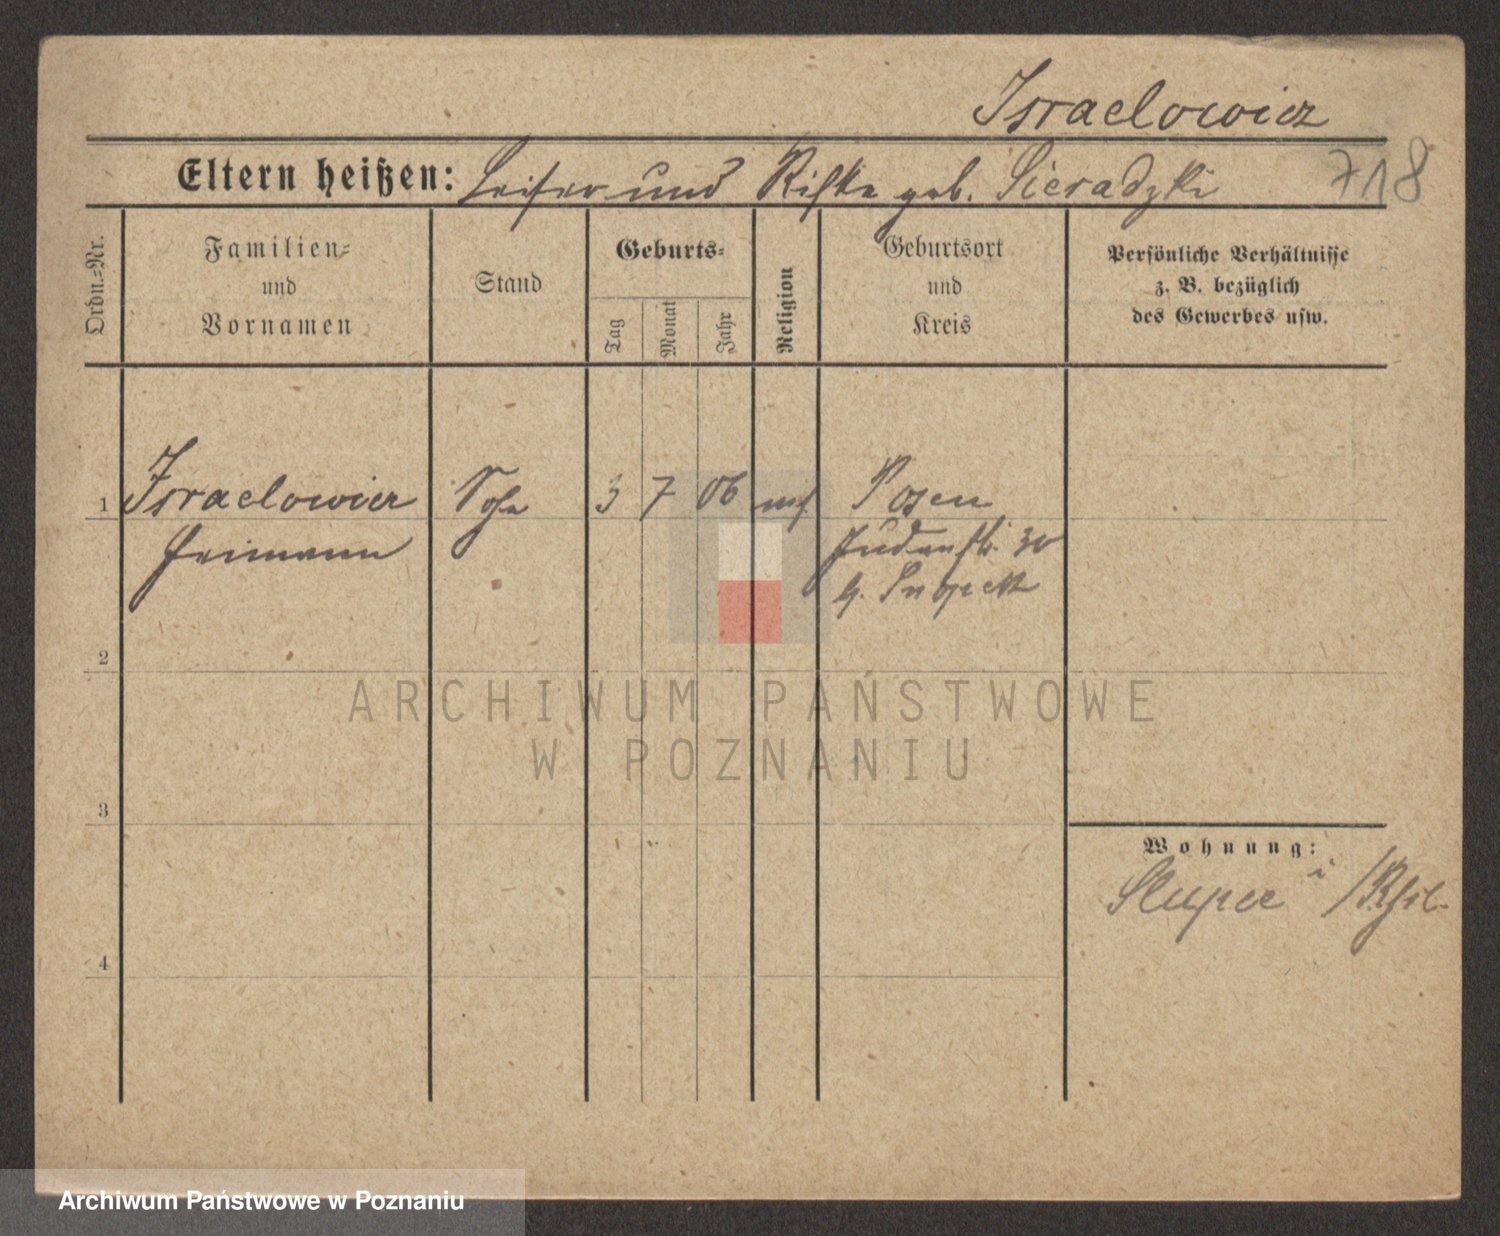 Israelowicz
Eltern heißen: Leiser und Rifke geb. Sieradzki 718
Ordn.-Nr.
Familien-
und
Vornamen
Stand
Geburts-
Tag
Monat
Jahr
Religion
Geburtsort
und
Kreis
Persönliche Verhältnisse
z. B. bezüglich
des Gewerbes usw.
1 Israelowicz Sohn 3 7 06 mos Posen
Heimann Judenstr. 30
b.
2
3
4
Wohnung:
Slupce i
ARCHIWUM PAŃSTWOWE
W POZNANIU
Archiwum Państwowe w Poznaniu